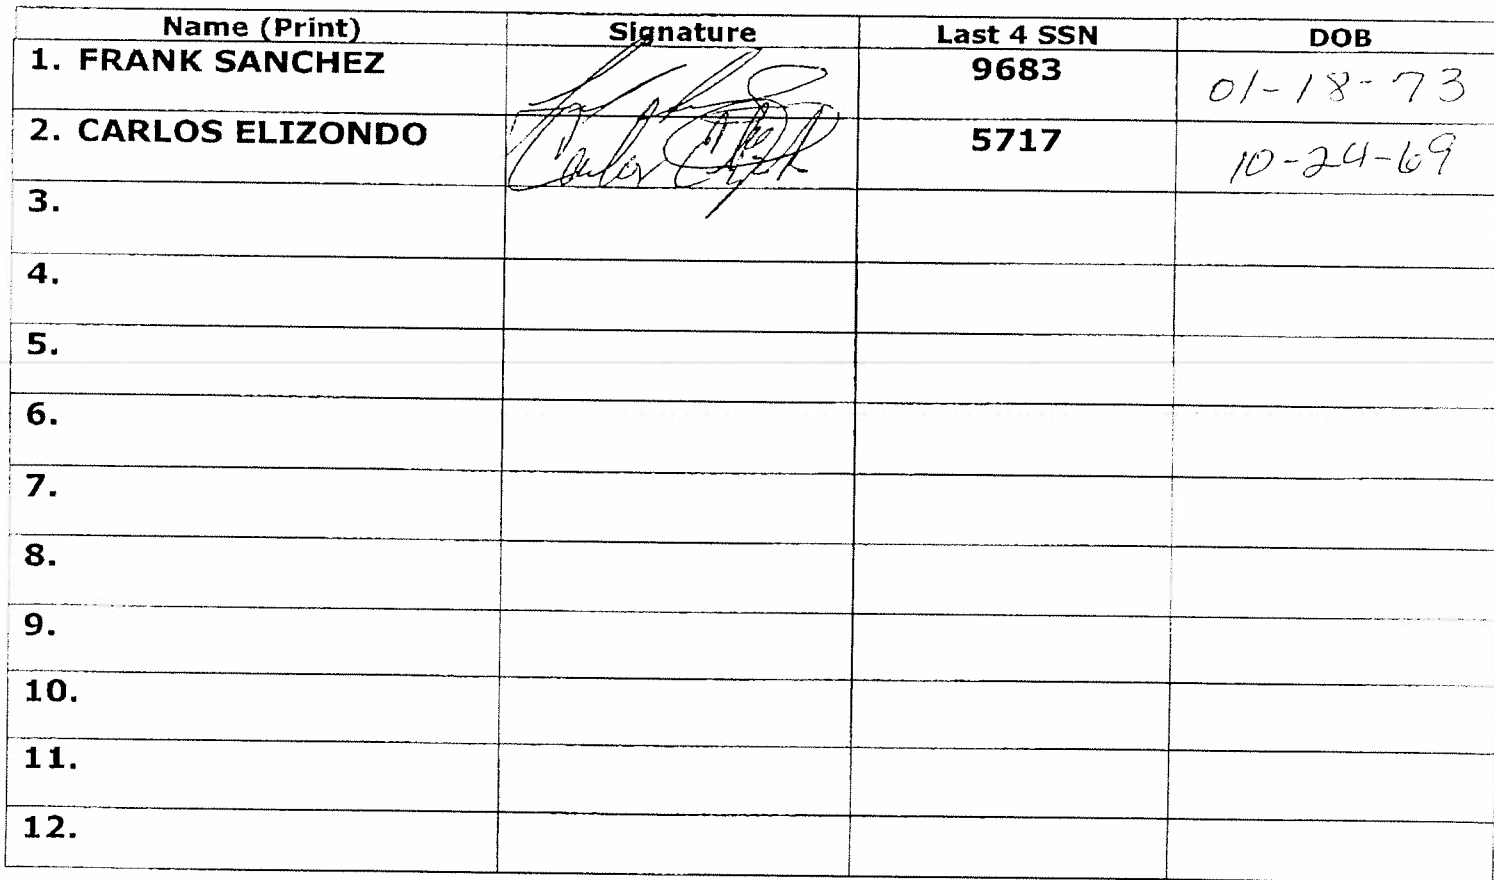 Name (Print) Signature Last 4 SSN DOB
1. FRANK SANCHEZ 9683 01-18-73
2. CARLOS ELIZONDO Carlos 5717 10-24-69
3.
4.
5.
6.
7.
8.
9.
10.
11.
12.